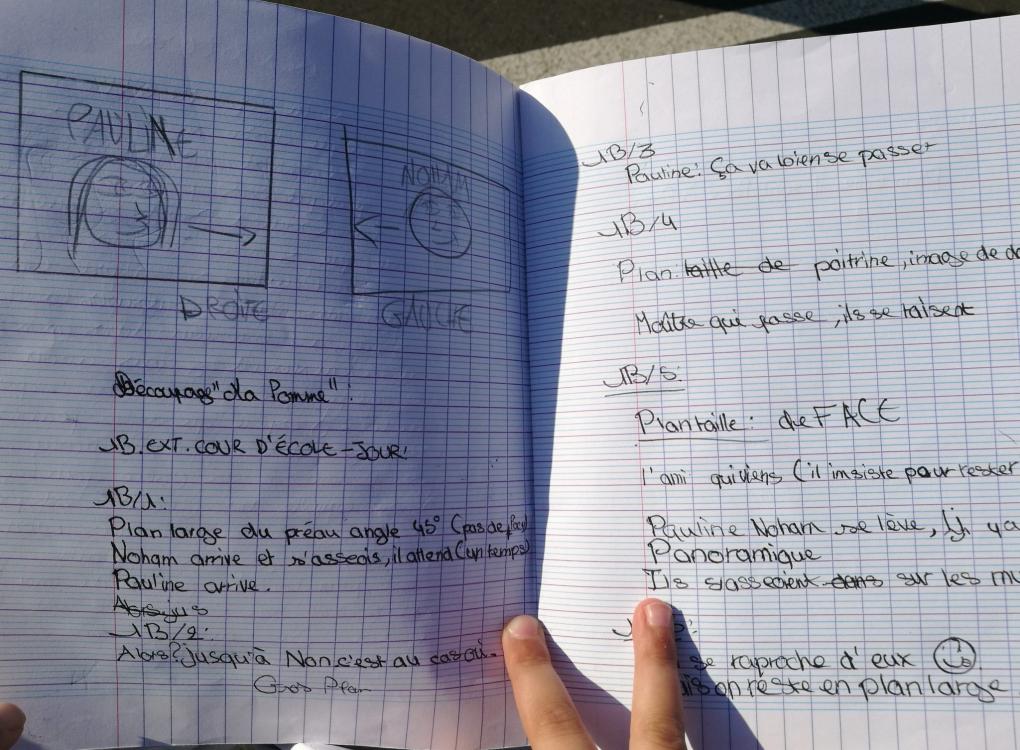 PAULINE
NOHAM
DROITE
GAUCHE
Découpage "La Pomme" :
1B. EXT. COUR D'ÉCOLE - JOUR :
1B/1 :
Plan large du préau angle 45° (pas de face)
Noham arrive et s'asseois, il attend (un temps)
Pauline arrive.
1B/2 :
Alors? jusqu'à Non c'est au cas où.
Gros Plan
1B/3
Pauline : Ça va bien se passer
1B/4
Plan taille de poitrine, image de
Maître qui passe, ils se taisent
1B/5 :
Plan taille : de FACE
l'ami qui viens (il insiste pour rester
Pauline Noham se lève, ya
Panoramique
Ils s'asseoient dans sur les
se raproche d'eux
on reste en plan large